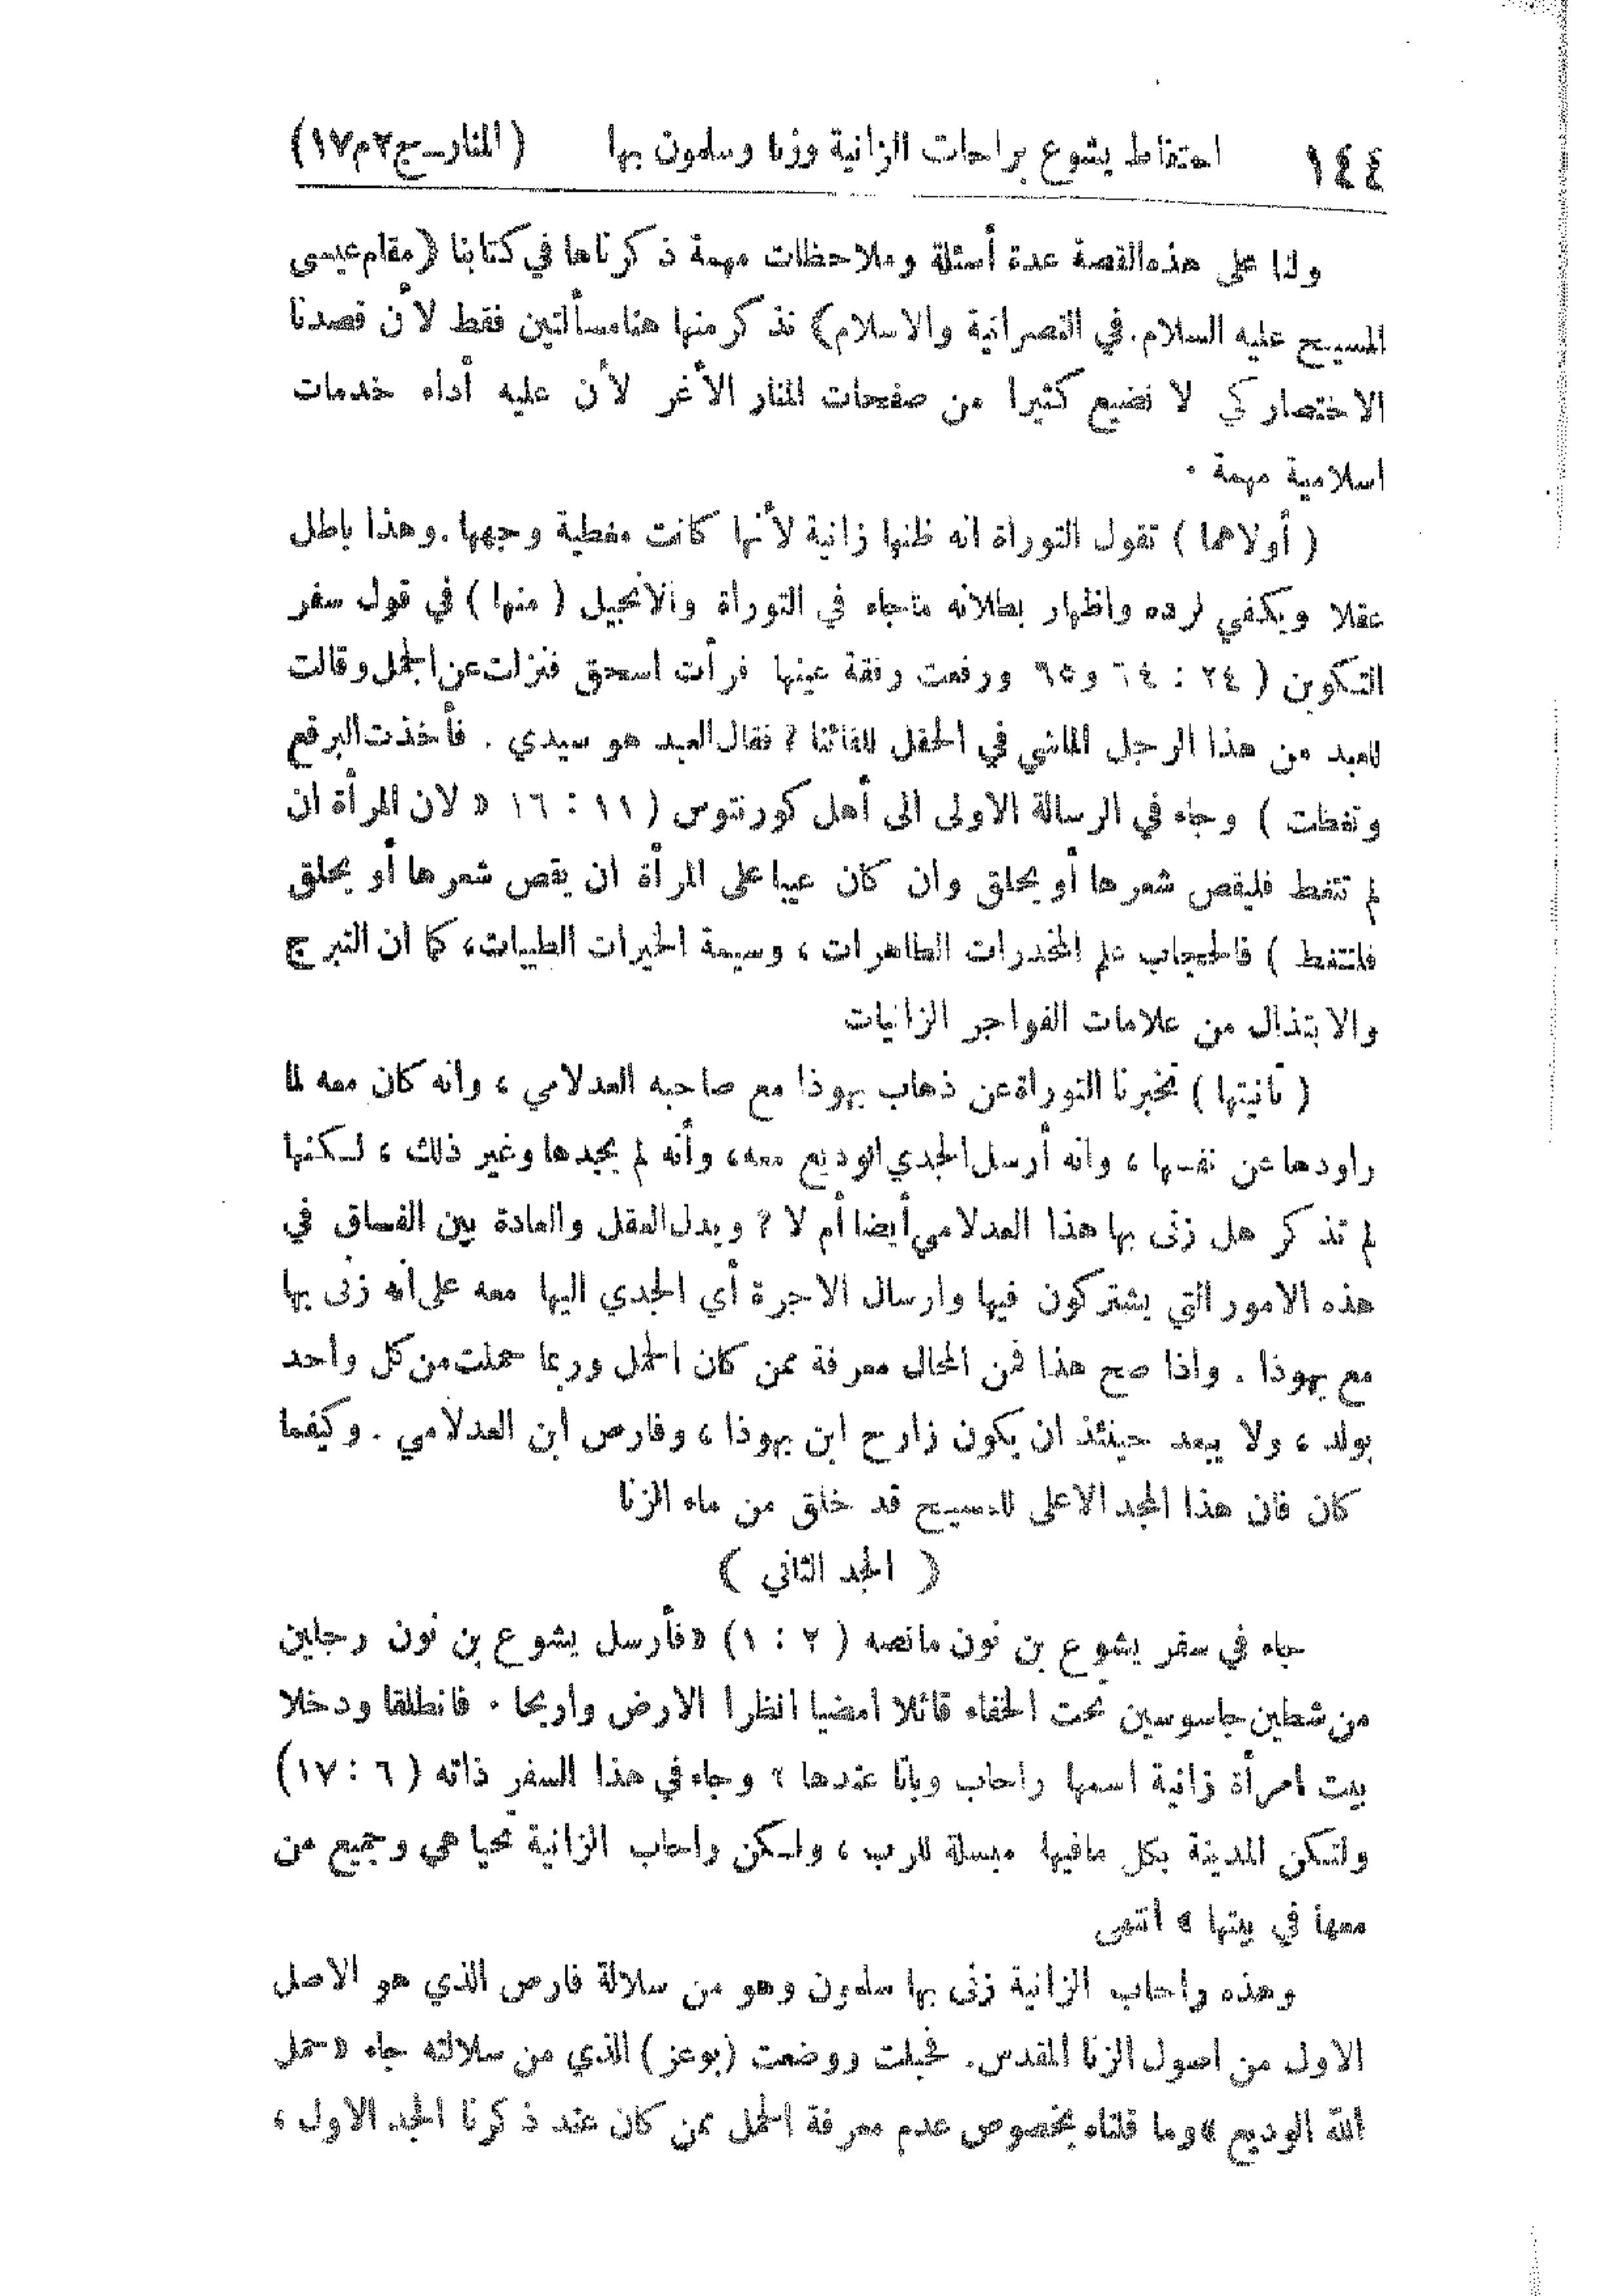 ١٤٤ احتفاظ يشوع براحاب الزانية وزنا وسلمون بها (المنار-ج٢م١٧)
ولنا على هذه القصة عدة أسئلة وملاحظات مهمة ذكرناها في كتابنا (مقام عيسى
المسيح عليه السلام. في النصرانية والاسلام) نذكر منها هنا مسألتين فقط لأن قصدنا
الاختصار كي لا نضيع كثيرا من صفحات المنار الأغر لأن عليه أداء خدمات
اسلامية مهمة ٠
( أولاهما ) تقول التوراة انه ظنها زانية لأنها كانت مغطية وجهها . وهذا باطل
عقلا ويكفي لرده واظهار بطلانه ماجاء في التوراة والانجيل ( منها ) في قول سفر
التكوين ( ٢٤ : ٦٤ و ٦٥ ورفعت رفقة عينها فرأت اسحق فنزلت عن الجمل وقالت
للعبد من هذا الرجل الماشي في الحقل للقائنا ? فقال العبد هو سيدي . فأخذت البرقع
وتغطت ) وجاء في الرسالة الاولى الى أهل كورنتوس ( ١١ : ١٦ « لان المرأة ان
لم تتغط فليقص شعرها أو يحلق وان كان عيبا على المرأة ان يقص شعرها أو يحلق
فلتتغط ) فالحجاب علم المخدرات الطاهرات ، وسيمة الخيرات الطيبات ، كما ان التبرج
والابتذال من علامات الفواجر الزانيات
( ثانيتها ) تخبرنا التوراة عن ذهاب يهوذا مع صاحبه العدلامي ، وأنه كان معه لما
راودها عن نفسها ، وانه أرسل الجدي الوديع معه ، وأنه لم يجدها وغير ذلك ، لكنها
لم تذكر هل زنى بها هذا العدلامي أيضا أم لا ? ويدل العقل والعادة بين الفساق في
هذه الامور التي يشتركون فيها وارسال الاجرة أي الجدي اليها معه على أنه زنى بها
مع يهوذا . واذا صح هذا فمن المحال معرفة ممن كان الحمل وربما حملت من كل واحد
بولد ، ولا يبعد حينئذ ان يكون زارح ابن يهوذا ، وفارص ابن العدلامي . وكيفما
كان فان هذا الجد الاعلى للمسيح قد خلق من ماء الزنا
( الجد الثاني )
جاء في سفر يشوع بن نون مانصه ( ٢ : ١ ) « فأرسل يشوع بن نون رجلين
من شطين جاسوسين تحت الخفاء قائلا امضيا انظرا الارض وأريحا ٠ فانطلقا ودخلا
بيت امرأة زانية اسمها راحاب وباتا عندها » وجاء في هذا السفر ذاته ( ٦ : ١٧ )
ولتكن المدينة بكل مافيها مبسلة للرب ، ولكن راحاب الزانية تحيا هي وجميع من
معها في بيتها » انتهى
وهذه راحاب الزانية زنى بها سلمون وهو من سلالة فارص الذي هو الاصل
الاول من اصول الزنا المقدس. فحبلت ووضعت (بوعز) الذي من سلالته جاء « حمل
الله الوديع » وما قلناه بخصوص عدم معرفة الحمل ممن كان عند ذكرنا الجد الاول ،